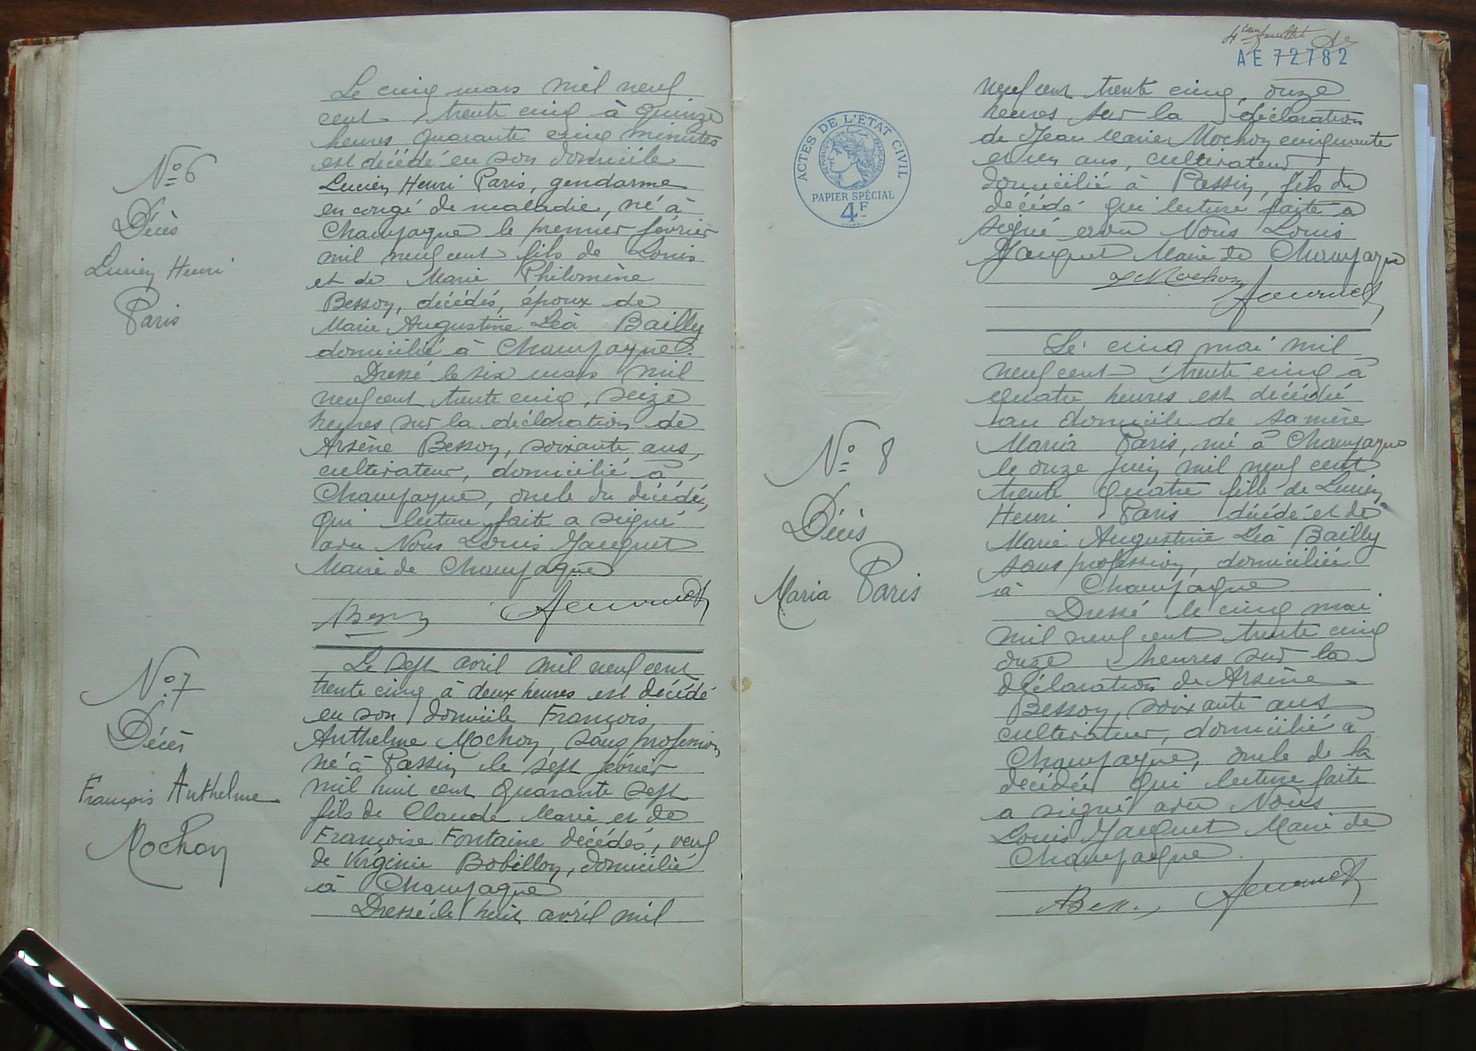 No 6
Décès
Lucien Henri
Paris
Le cinq mars mil neuf
cent trente cinq à quinze
heures quarante cinq minutes
est décédé en son domicile
Lucien Henri Paris, gendarme
en congé de maladie, né à
Champagne le premier février
mil neuf cent fils de Louis
et de Marie Philomène
Besson, décédés, époux de
Marie Augustine Léa Bailly
domicilié à Champagne.
Dressé le six mars mil
neuf cent trente cinq, seize
heures sur la déclaration de
Arsène Besson, soixante ans,
cultivateur, domicilié à
Champagne, oncle du décédé,
qui lecture faite a signé
avec Nous Louis Jacquet
Maire de Champagne
No 7
Décès
François Anthelme
Mochon
Le sept avril mil neuf cent
trente cinq à deux heures est décédé
en son domicile François
Anthelme Mochon, sans profession
né à Passin le sept février
mil huit cent quarante sept
fils de Claude Marie et de
Françoise Fontaine décédés, veuf
de Virginie Bobillon, domicilié
à Champagne
Dressé le huit avril mil
AE 72782
ACTES DE L'ÉTAT CIVIL
PAPIER SPÉCIAL
4F
neuf cent trente cinq, onze
heures sur la déclaration
de Jean Marie Mochon cinquante
et un ans, cultivateur
domicilié à Passin, fils du
décédé qui lecture faite a
signé avec Nous Louis
Jacquet Maire de Champagne
J Mochon
No 8
Décès
Maria Paris
Le cinq mai mil
neuf cent trente cinq à
quatre heures est décédée
au domicile de sa mère
Maria Paris, née à Champagne
le onze juin mil neuf cent
trente quatre fille de Lucien
Henri Paris décédé et de
Marie Augustine Léa Bailly
sans profession, domiciliée
à Champagne
Dressé le cinq mai
mil neuf cent trente cinq
onze heures sur la
déclaration de Arsène
Besson, soixante ans
cultivateur, domicilié à
Champagne, oncle de la
décédée qui lecture faite
a signé avec Nous
Louis Jacquet Maire de
Champagne.